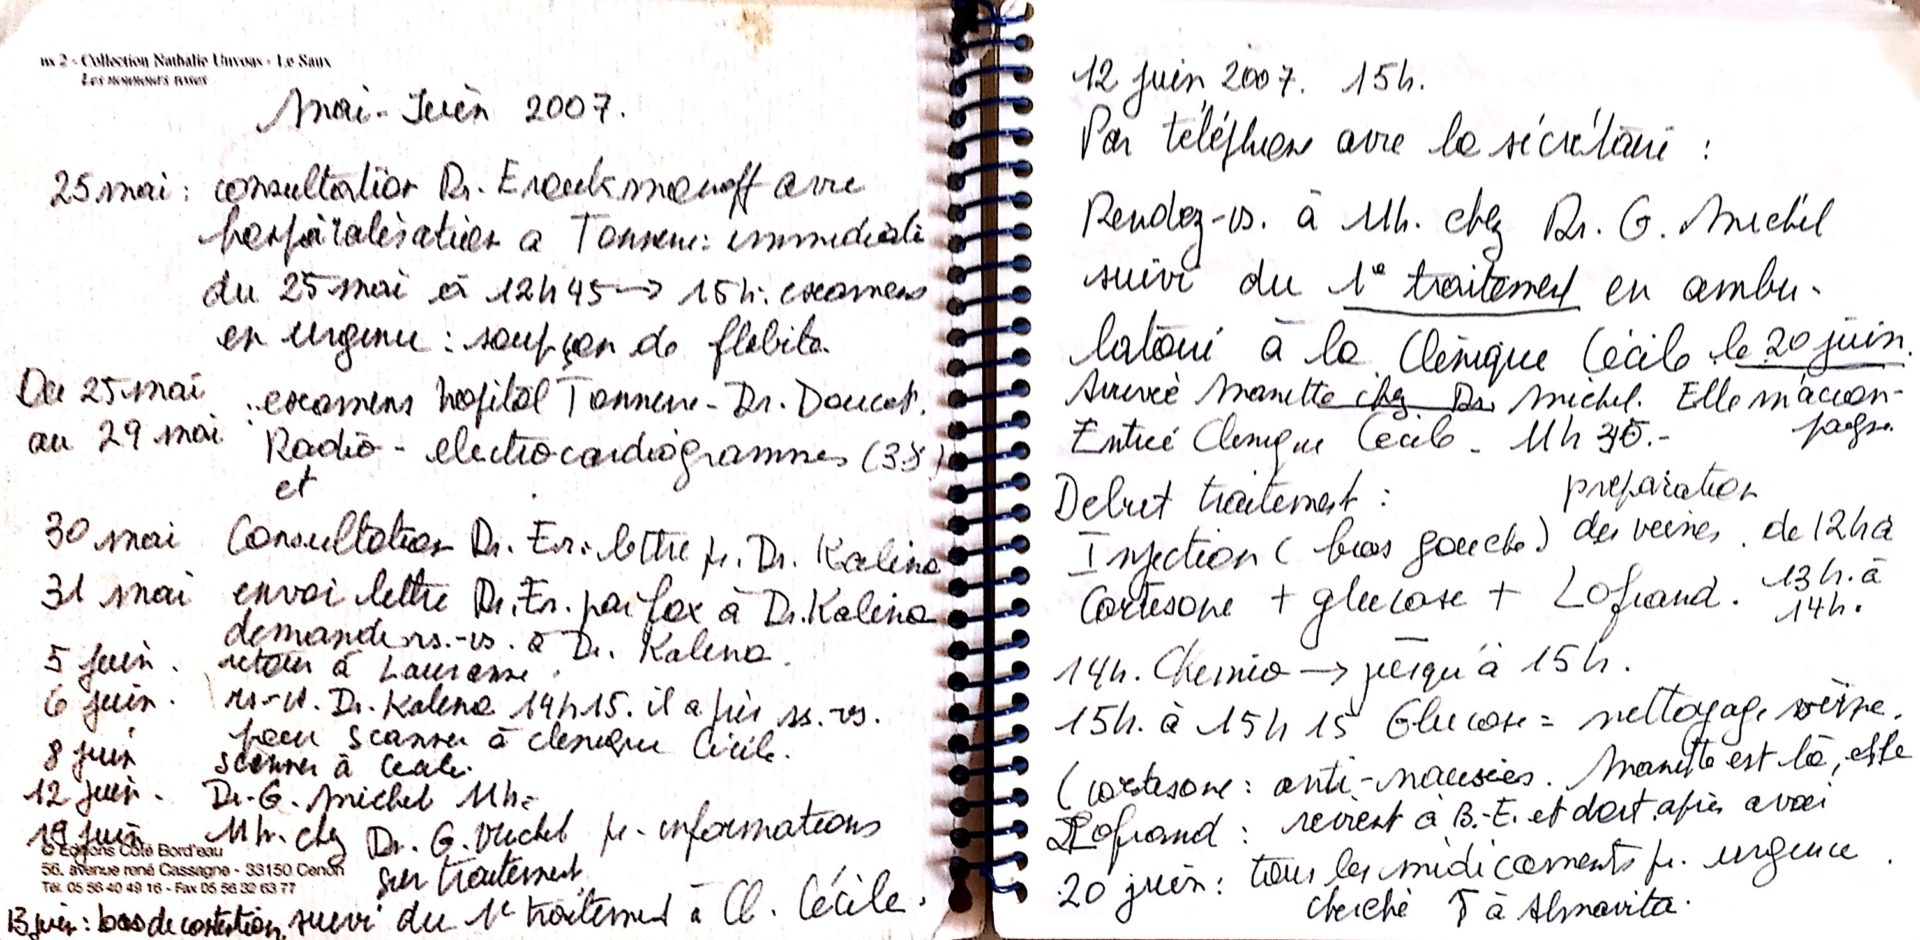 ns 2 - Collection Nathalie Unvoas - Le Saux
Les nounours roses
Mai - Juin 2007.
25 mai : consultation Dr. avec
hospitalisation a Tonnerre immédiate
du 25 mai à 12h45 → 15h. examens
en urgence : soupçon de flébite.
Du 25 mai
au 29 mai : examens hopital Tonnerre - Dr. Doucet.
Radio - electrocardiogrammes (3x)
et
30 mai Consultation Dr. Er. lettre pr. Dr. Kalina
31 mai envoi lettre Dr. Er. par fax à Dr. Kalina
demande rs.-vs. à Dr. Kalina.
5 juin. retour à Lausanne.
6 juin. rs-vs. Dr. Kalina 14h15. il a pris rs. vs.
pour scanner à clinique Cécile.
8 juin scanner à Cécile.
12 juin. Dr. G. Michel 11h.
19 juin 11h. chez Dr. G. Michel pr. informations
sur traitement
© Editions Coté Bord'eau
56, avenue rené Cassagne - 33150 Cenon
Tél. 05 56 40 49 16 - Fax 05 56 32 63 77
13 juin : bas de contention suivi du 1e traitement à Cl. Cécile.
12 juin 2007. 15h.
Par téléphone avec la sécrétaire :
Rendez-vs. à 11h. chez Dr. G. Michel
suivi du 1e traitement en ambu-
latoire à la Clinique Cécile le 20 juin.
Arrivée Manette chez Dr. Michel. Elle m'accom-
pagne.
Entrée Clinique Cécile - 11h -
Debut traitement : préparation
Injection (bras gauche) des veines. de 12h à
13h. à
Cortisone + glucose + Zofrand. 14h.
14h. Chemio → jusqu'à 15h.
15h. à 15h15 Glucose = nettoyage veine.
(cortisone : anti-nausées. Manette est là, elle
Zofrand : revient à B.-E. et dort après avoir
20 juin : tous les médicaments pr. urgence.
cherché à Almavita.